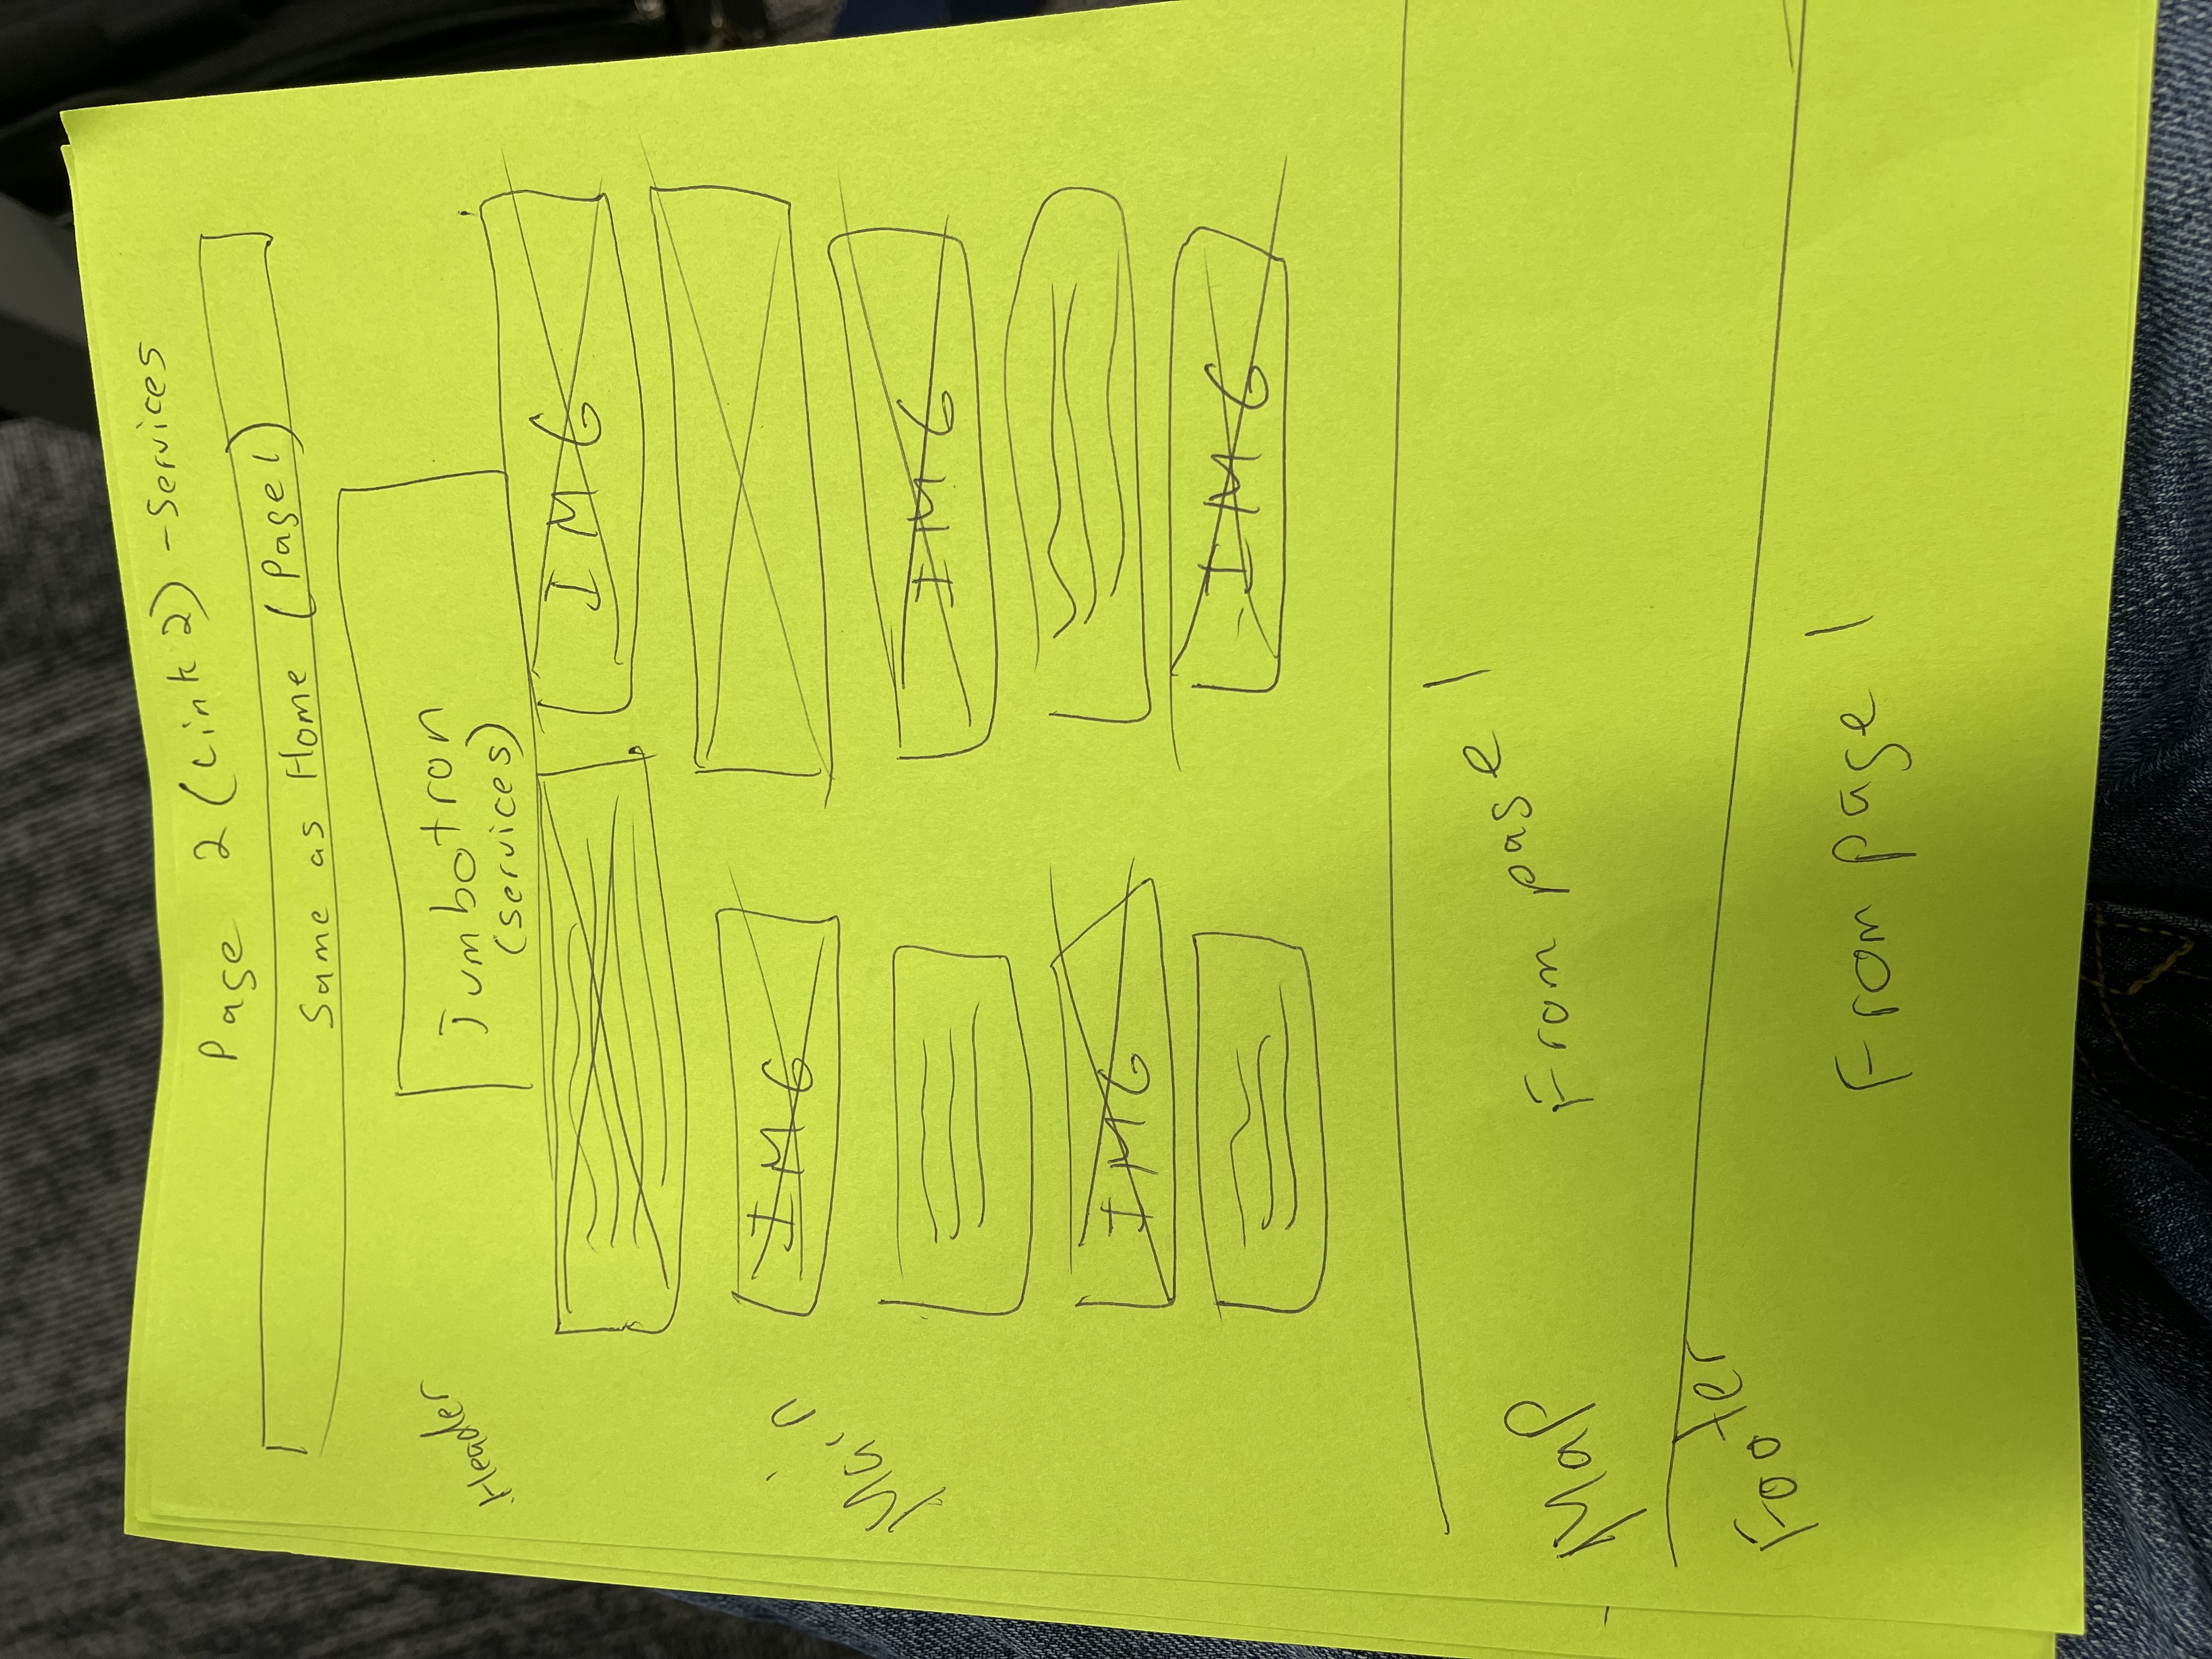 Page 2 (Link 2) - Services
Same as Home (Page 1)
Header
Jumbotron
(services)
IMG
Main
IMG
IMG
IMG
IMG
Map
From page 1
Footer
From page 1